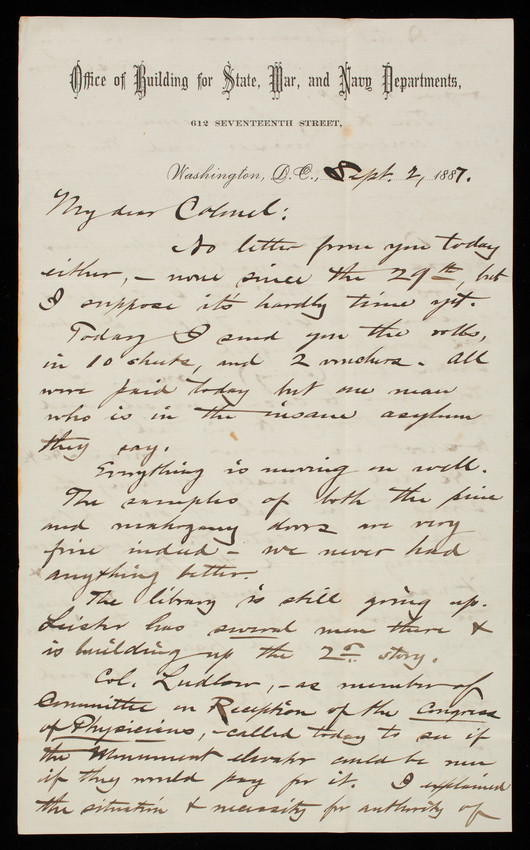 Office of Building for State, War, and Navy Departments,
612 SEVENTEENTH STREET,
Washington, D.C., Sept. 2, 1887.
My dear Colonel:
No letter from you today
either, – none since the 29th, but
I suppose it's hardly time yet.
Today I send you the rolls,
in 10 sheets, and 2 vouchers. All
were paid today but one man
who is in the insane asylum
they say.
Everything is moving on well.
The samples of both the pine
and mahogany doors are very
fine indeed – we never had
anything better.
The library is still going up.
has several men there &
is building up the 2d. story.
Col. Ludlow, – as member of
Committee on Reception of the Congress
of Physicians, – called today to see if
the Monument elevator could be run
if they would pay for it. I explained
the situation & necessity for authority of